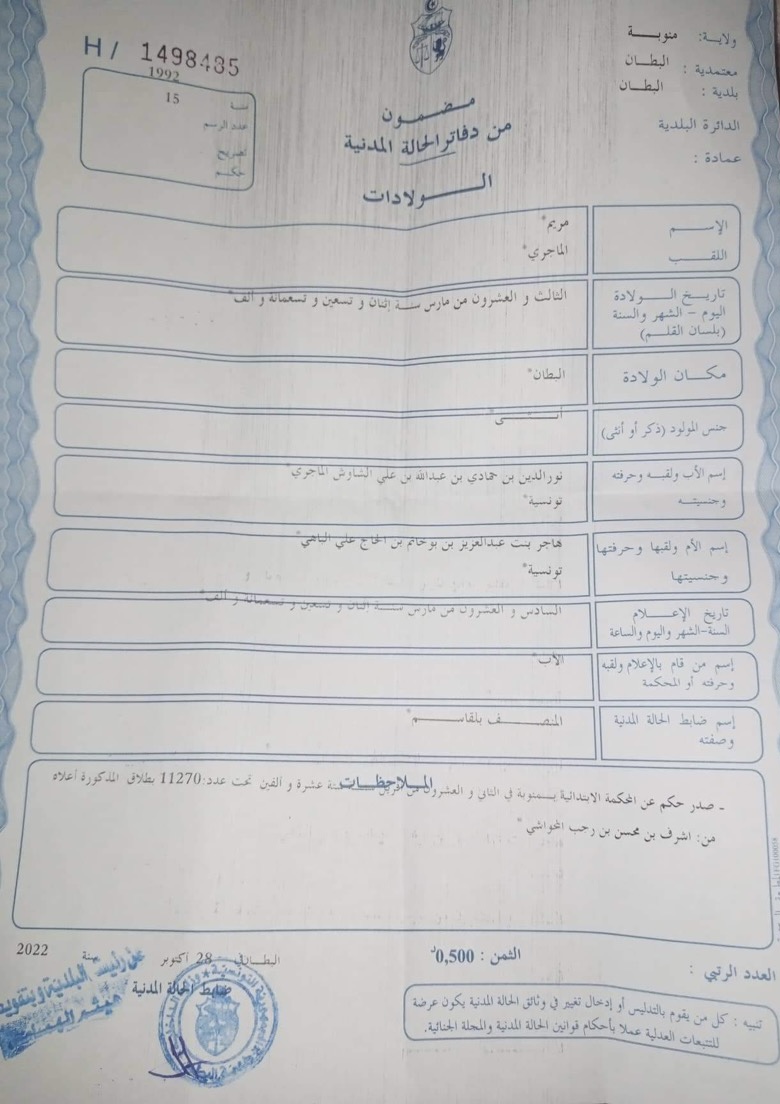 ولاية: منوبة
معتمدية: البطان
بلدية: البطان
الدائرة البلدية
عمادة:
H/ 1498485
سنة 1992
عدد الرسم 15
تصريح
حكم
مضمون
من دفاتر الحالة المدنية
الولادات
الإسم مريم*
اللقب الماجري*
تاريخ الولادة
اليوم - الشهر والسنة
(بلسان القلم)
الثالث و العشرون من مارس سنة إثنان و تسعين و تسعمائة و ألف*
مكان الولادة البطان*
جنس المولود (ذكر أو أنثى) أنثى*
إسم الأب ولقبه وحرفته
وجنسيته
نورالدين بن حمادي بن عبدالله بن علي الشاوش الماجري*
تونسية*
إسم الأم ولقبها وحرفتها
وجنسيتها
هاجر بنت عبدالعزيز بن بوخاتم بن الحاج علي الباهي*
تونسية*
تاريخ الإعلام
السنة-الشهر واليوم والساعة
السادس و العشرون من مارس سنة اثنان و تسعين و تسعمائة و ألف*
إسم من قام بالإعلام ولقبه
وحرفته أو المحكمة
الأب*
إسم ضابط الحالة المدنية
وصفته
المنصف بلقاسم*
الملاحظات
- صدر حكم عن المحكمة الابتدائية بمنوبة في الثاني و العشرون من عشرة و ألفين تحت عدد:11270 بطلاق المذكورة أعلاه
من: اشرف بن محسن بن رجب المخواشي*
العدد الرتبي :
الثمن : 0,500د
البطان في 28 أكتوبر سنة 2022
ضابط الحالة المدنية
عن رئيس البلدية وبتفويض
تنبيه : كل من يقوم بالتدليس أو إدخال تغيير في وثائق الحالة المدنية يكون عرضة
للتتبعات العدلية عملا بأحكام قوانين الحالة المدنية والمجلة الجنائية.